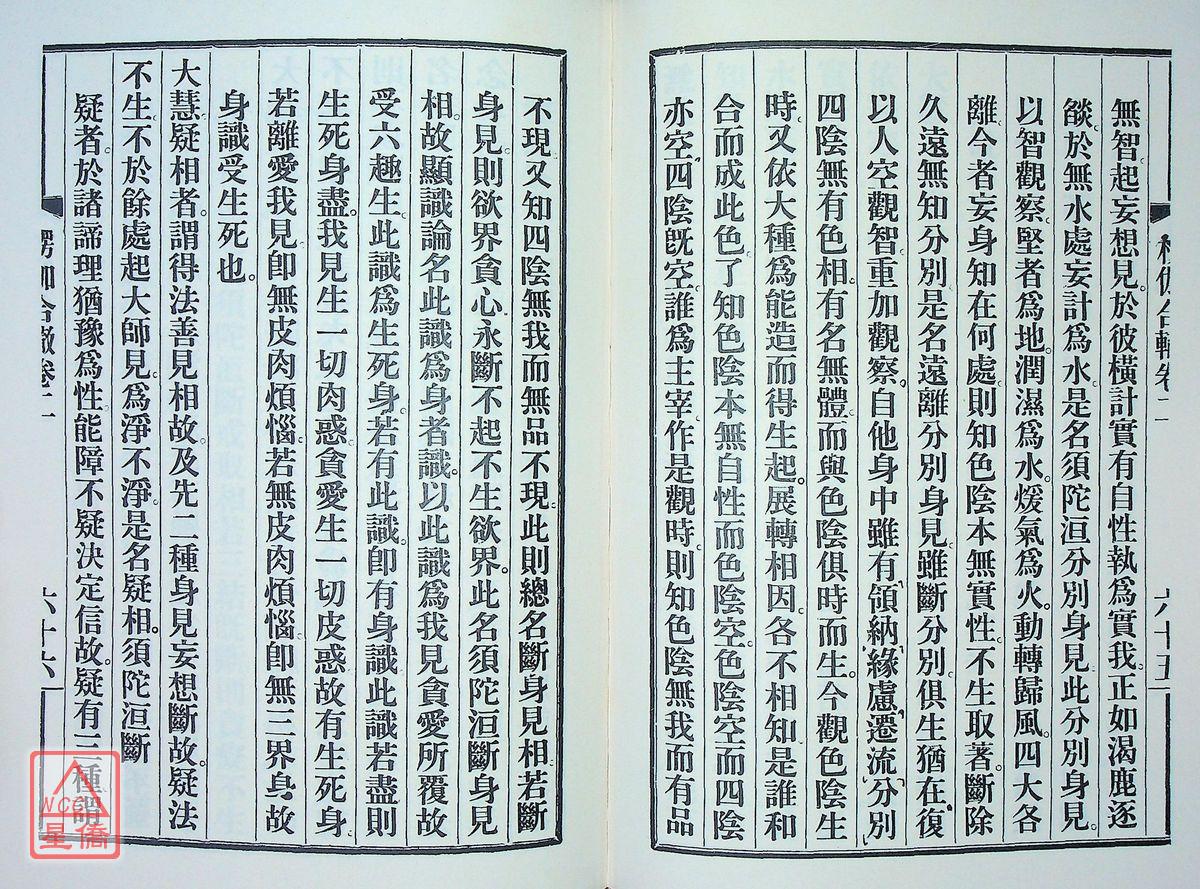 無智。起妄想見。於彼橫計實有自性執爲實我。正如渴鹿逐
燄。於無水處妄計爲水。是名須陀洹分別身見此分別身見。
以智觀察。堅者爲地。潤濕爲水。煖氣爲火。動轉歸風。四大各
離。今者妄身知在何處。則知色陰本無實性。不生取著。斷除
久遠無知分別。是名遠離分別身見。雖斷分別。俱生猶在。復
以人空觀智重加觀察。自他身中雖有領納、緣慮、遷流、分別
四陰無有色相。有名無體。而與色陰俱時而生。今觀色陰生
時。又依大種爲能造而得生起。展轉相因。各不相知。是誰和
合而成此色。了知色陰本無自性而色陰空。色陰空而四陰
亦空。四陰旣空誰爲主宰。作是觀時。則知色陰無我而有品
六十五
不現。又知四陰無我而無品不現。此則總名斷身見相。若斷
身見。則欲界貪心永斷不起。不生欲界。此名須陀洹斷身見
相。故顯識論名此識爲身者識。以此識爲我見貪愛所覆故
受六趣生。此識爲生死身。若有此識。卽有身識。此識若盡。則
生死身盡。我見生一切肉惑。貪愛生一切皮惑故有生死身。
若離愛我見。卽無皮肉煩惱。若無皮肉煩惱。卽無三界身。故
身識受生死也。
大慧。疑相者。謂得法善見相故。及先二種身見妄想斷故。疑法
不生。不於餘處起大師見。爲淨不淨。是名疑相。須陀洹斷
疑者。於諸諦理猶豫爲性。能障不疑決定信故。疑有三種。謂
楞伽合轍卷二
六十六
WCC
星僑